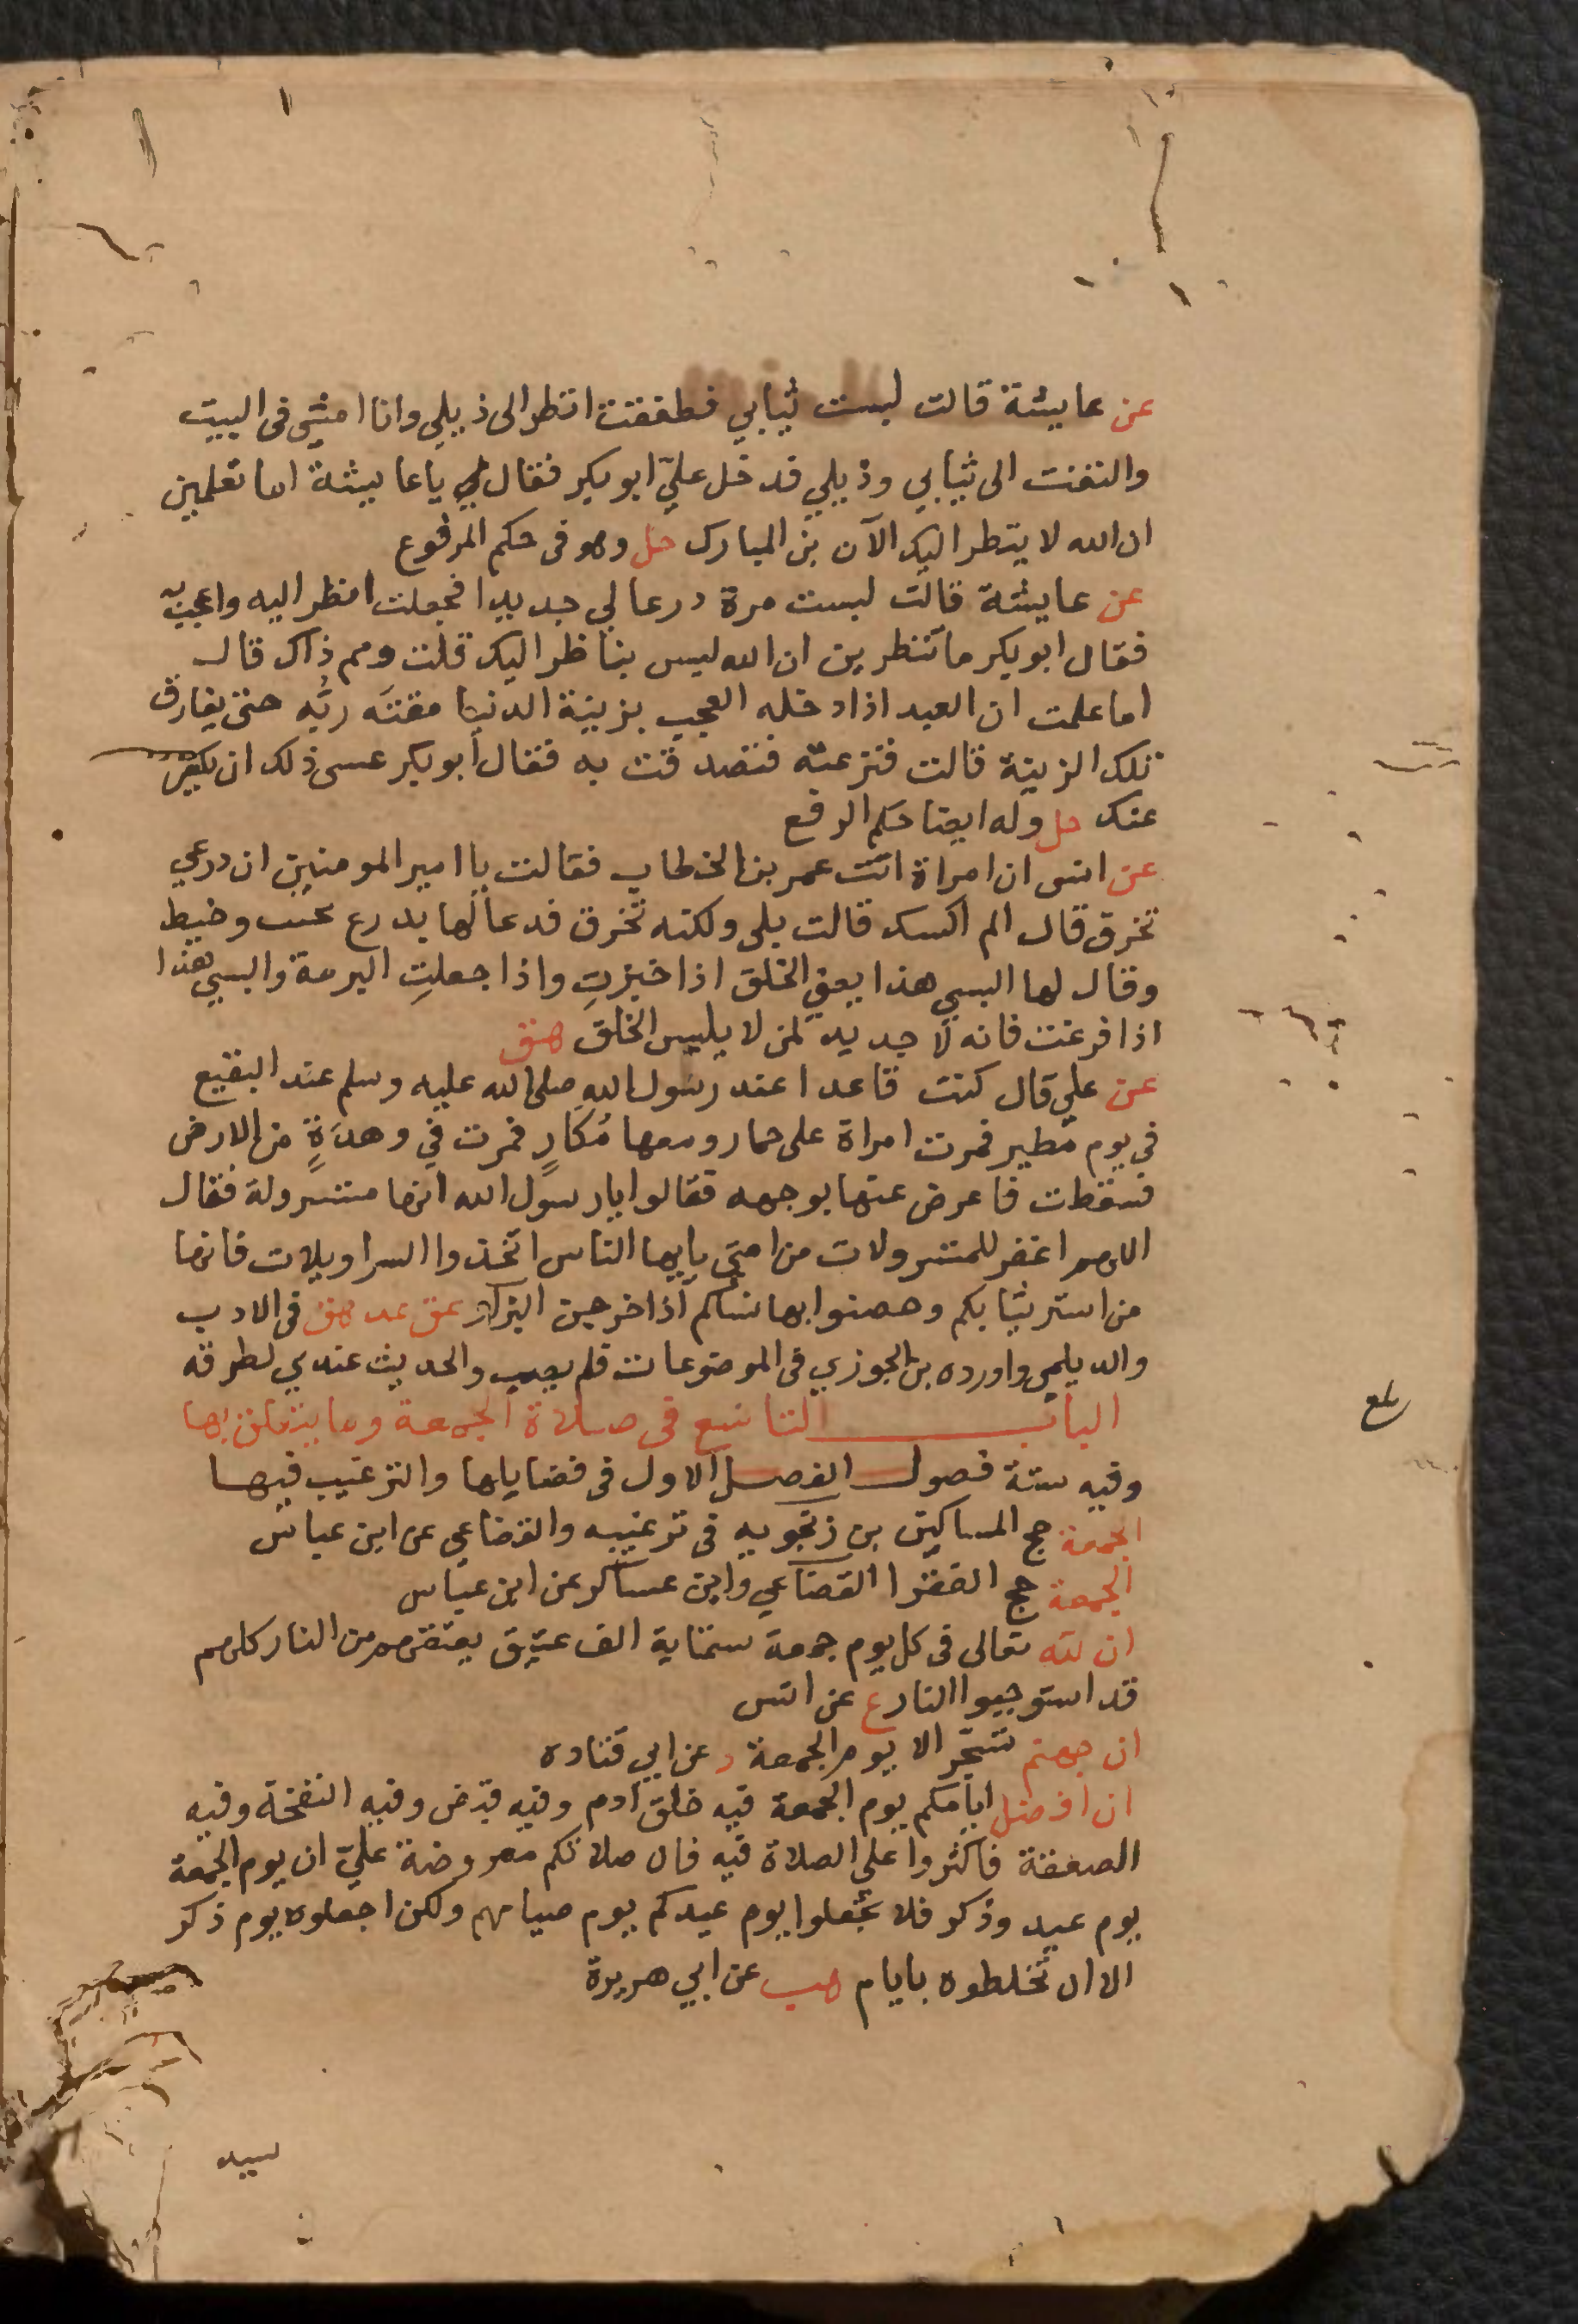 عن عايشة قالت لبست ثيابي فطفقت انظر الى ذيلي وانا امشي في البيت
والتفت الى ثيابي وذيلي فدخل عليّ ابو بكر فقال لي يا عايشة اما تعلمين
ان الله لا ينظر اليك الآن بن المبارك حل وهو في حكم المرفوع
عن عايشة قالت لبست مرة درعا لي جديدا فجعلت انظر اليه واعجبت به
فقال ابو بكر ما تنظرين ان الله ليس بناظر اليك قلت ومم ذاك قال
اما علمت ان العبد اذا دخله العجب بزينة الدنيا مقته ربه حتى يفارق
تلك الزينة قالت فنزعته فتصدقت به فقال أبو بكر عسى ذلك ان يكفر
عنك حل وله ايضا حكم الرفع
عن انس ان امراة اتت عمر بن الخطاب فقالت يا امير المومنين ان درعي
تخرق قال الم اكسك قالت بلى ولكنه تخرق فدعا لها بدرع وخيط
وقال لها البسي هذا يعني الخلق اذا خبزتِ واذا جعلتِ البرمة والبسي هذا
اذا فرغت فانه لا جديد لمن لا يلبس الخلق هق
عن علي قال كنت قاعدا عند رسول الله صلى الله عليه وسلم عند البقيع
في يوم مطير فمرت امراة على حمار ومعها مُكارٍ فمرت في وهدةٍ من الارض
فسقطت فاعرض عنها بوجهه فقالوا يا رسول الله انها متسرولة فقال
اللهم اغفر للمتسرولات من امتي يايها الناس اتخذوا السراويلات فانها
من استر ثيابكم وحصنوا بها نساكم اذا خرجن البزار عق عد هق في الادب
والديلمي واورده بن الجوزي في الموضوعات فلم يصب والحديث عندي لطرقه
الباب التاسع في صلاة الجمعة وما يتعلق بها
وفيه ستة فصول الفصل الاول في فضايلها والترغيب فيها
الجمعة حج المساكين بن زنجويه في ترغيبه والقضاعي عن ابن عباس
الجمعة حج الفقرا القضاعي وابن عساكر عن ابن عباس
ان لله تعالى في كل يوم جمعة ستماية الف عتيق يعتقهم من النار كلهم
قد استوجبوا النار ع عن انس
ان جهنم تسجّر الا يوم الجمعة د عن ابي قتادة
ان افضل ايامكم يوم الجمعة فيه خلق آدم وفيه قبض وفيه النفخة وفيه
الصعقة فاكثروا علي الصلاة فيه فان صلاتكم معروضة عليّ ان يوم الجمعة
يوم عيد وذكر فلا تجعلوا يوم عيدكم يوم صيامهم ولكن اجعلوه يوم ذكر
الا ان تخلطوه بايام هب عن ابي هريرة
بلغ
سيد